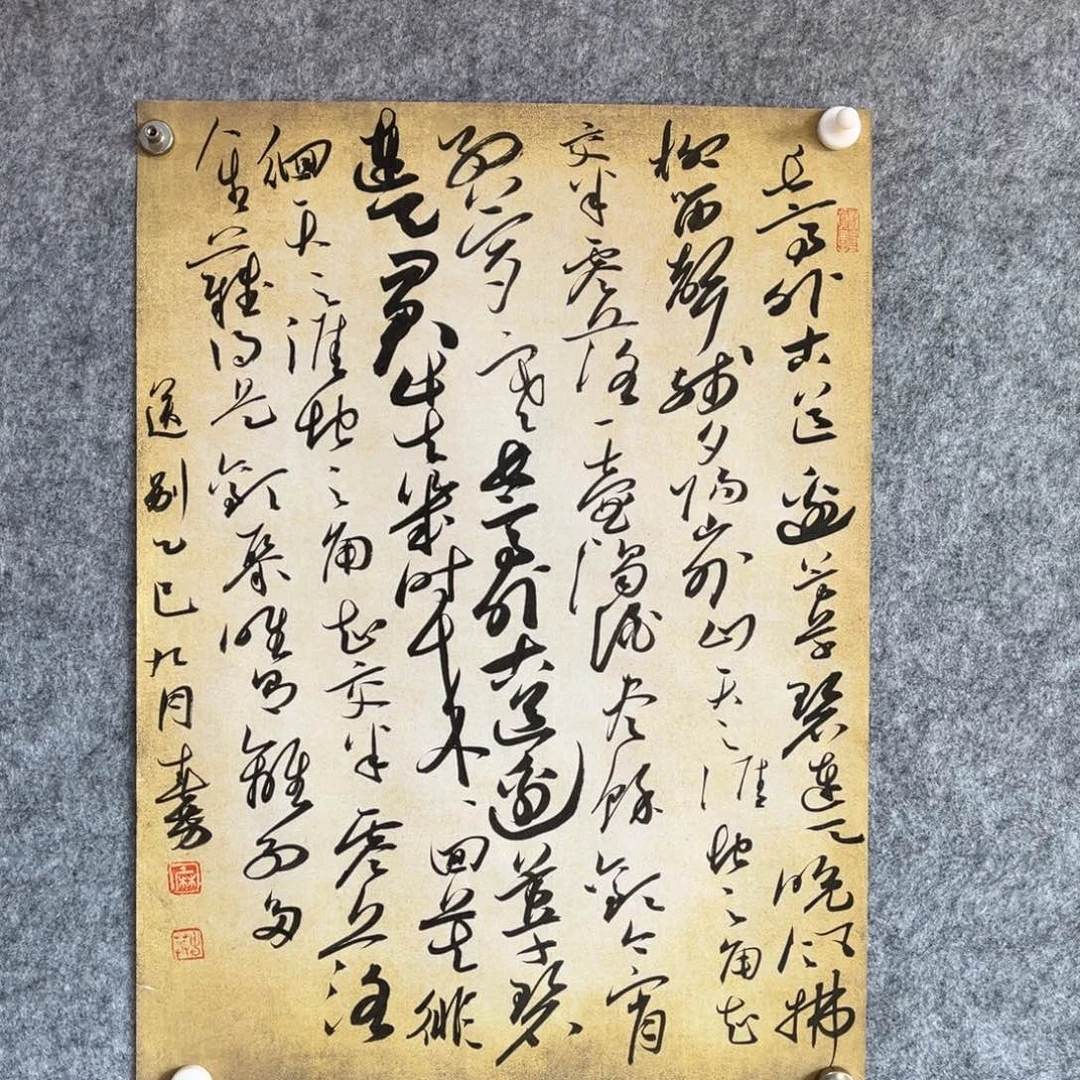 長亭外古道邊芳草碧連天晚風拂
柳笛聲殘夕陽山外山天之涯地之角知
交半零落一壺濁酒尽餘歡今宵
别夢寒長亭外古道邊芳草碧
連天問君此去幾時來、回莫徘
徊天之涯地之角知交半零落
人生難得是歡聚唯有離别多
送别乙巳九月